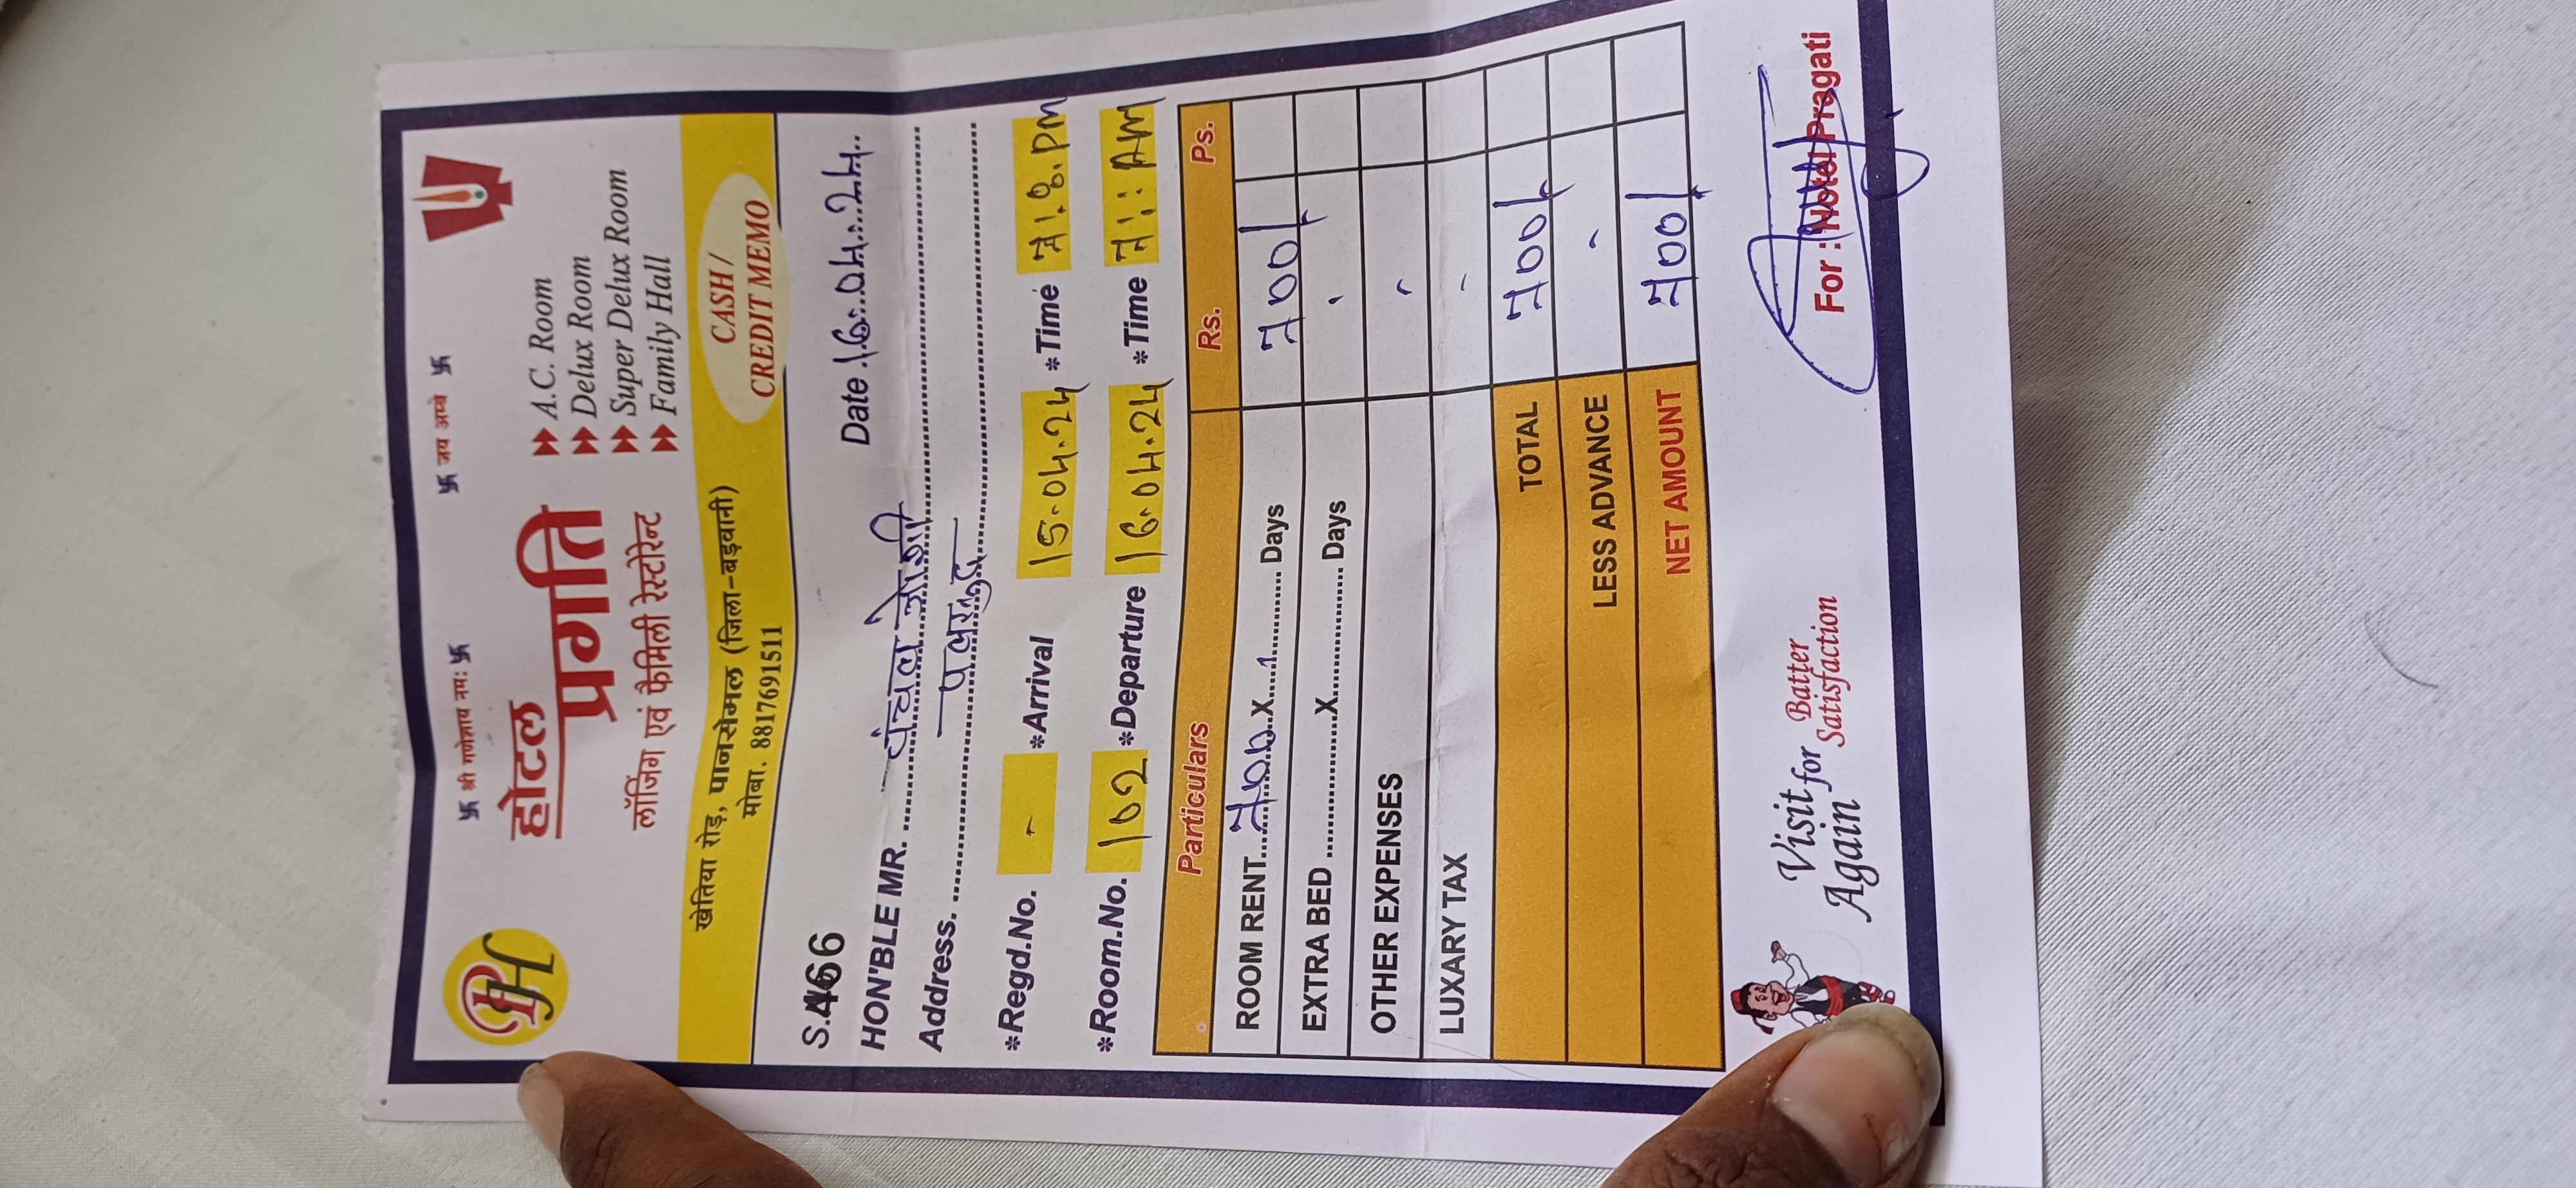 卐 श्री गणेशाय नमः 卐 卐 जय अम्बे 卐
PH
होटल
प्रगति
लॉजिंग एवं फैमिली रेस्टोरेन्ट
A.C. Room
Delux Room
Super Delux Room
Family Hall
खेतिया रोड़, पानसेमल (जिला-बड़वानी)
मोबा. 8817691511
CASH /
CREDIT MEMO
S. 466 Date 16.04.24
HON'BLE MR. चंचल जोशी
Address.
*Regd.No. - *Arrival 15.04.24 *Time PM
*Room.No. 102 *Departure 16.04.24 *Time AM
Particulars Rs. Ps.
ROOM RENT 700 X 1 Days 700/-
EXTRA BED X Days -
OTHER EXPENSES -
LUXARY TAX -
TOTAL 700/-
LESS ADVANCE -
NET AMOUNT 700/-
Visit for Batter
Again Satisfaction
For : Hotel Pragati